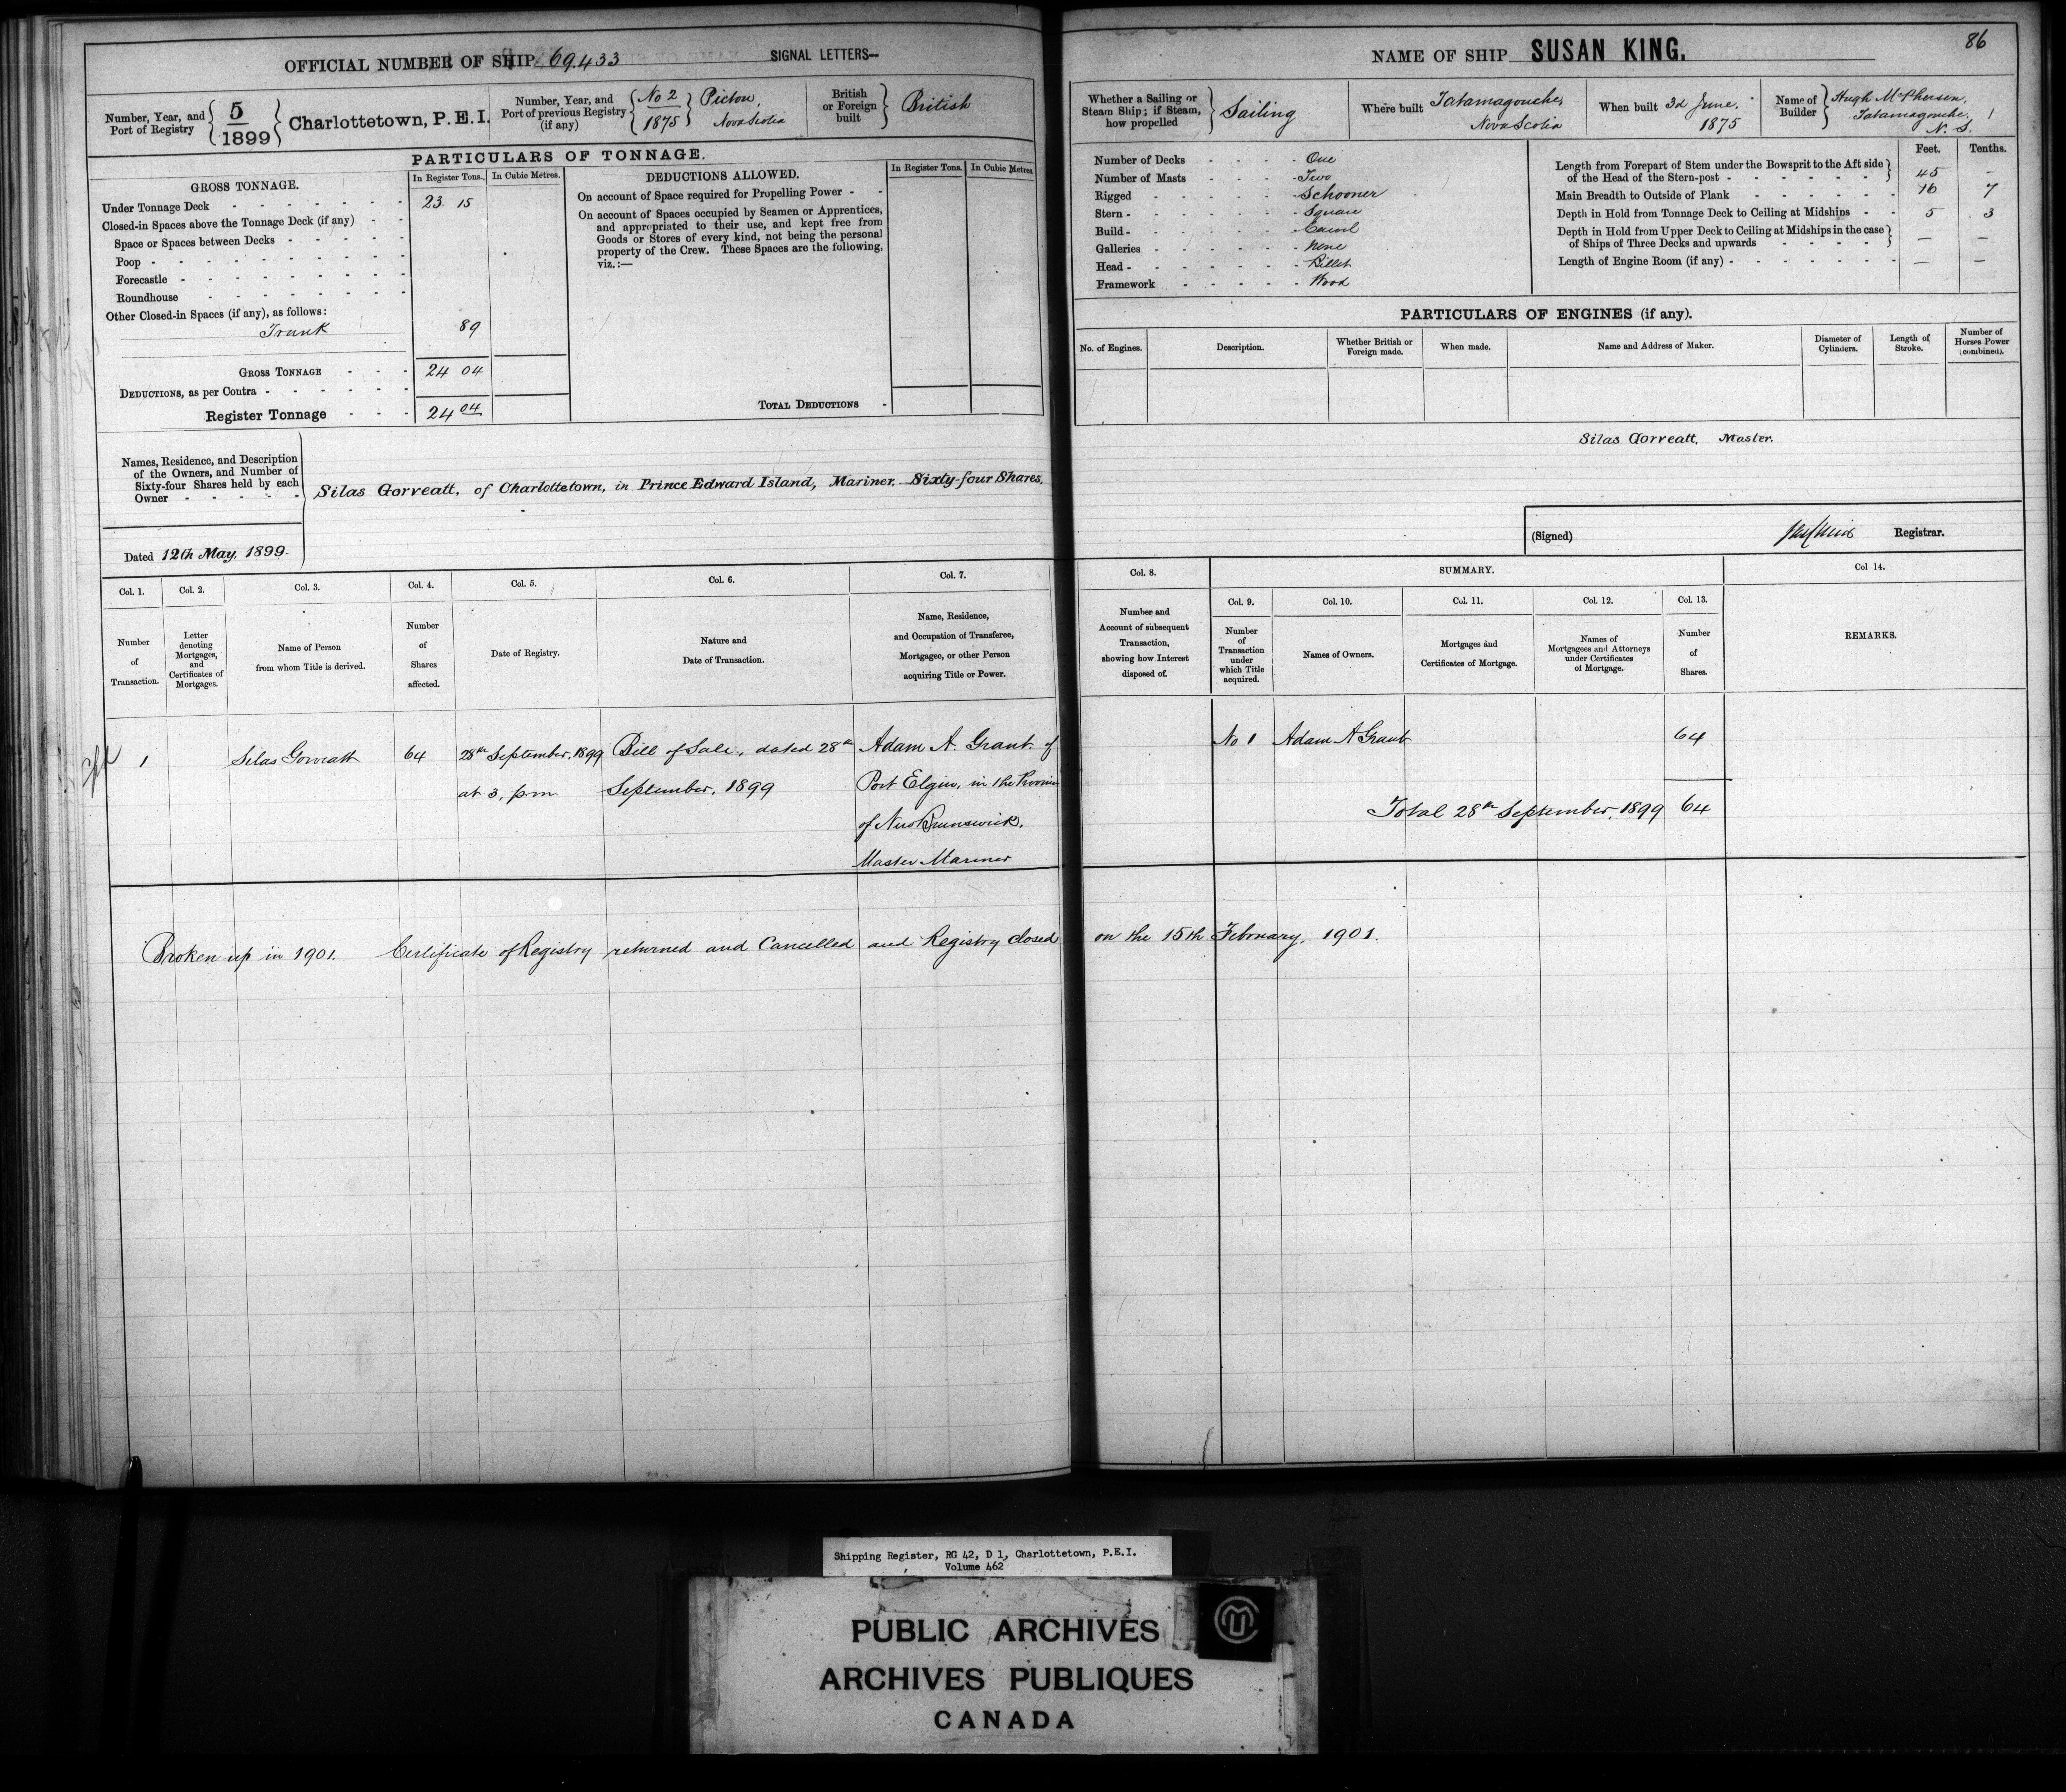 OFFICIAL NUMBER OF SHIP 69,433 SIGNAL LETTERS—
Number, Year, and Port of Registry 5/1899 Charlottetown, P.E.I.
Number, Year, and Port of previous Registry (if any) No 2 1875 Pictou, Nova Scotia
British or Foreign built British
PARTICULARS OF TONNAGE.
GROSS TONNAGE. In Register Tons. In Cubic Metres.
Under Tonnage Deck 23 15
Closed-in Spaces above the Tonnage Deck (if any)
Space or Spaces between Decks
Poop
Forecastle
Roundhouse
Other Closed-in Spaces (if any), as follows:
Trunk 89
GROSS TONNAGE 24 04
DEDUCTIONS, as per Contra
Register Tonnage 24 04
DEDUCTIONS ALLOWED. In Register Tons. In Cubic Metres.
On account of Space required for Propelling Power
On account of Spaces occupied by Seamen or Apprentices,
and appropriated to their use, and kept free from
Goods or Stores of every kind, not being the personal
property of the Crew. These Spaces are the following,
viz.:—
TOTAL DEDUCTIONS
Names, Residence, and Description
of the Owners, and Number of
Sixty-four Shares held by each
Owner
Silas Gorveatt, of Charlottetown, in Prince Edward Island, Mariner. Sixty-four Shares.
Dated 12th May, 1899.
NAME OF SHIP SUSAN KING.
86
Whether a Sailing or Steam Ship; if Steam, how propelled Sailing
Where built Tatamagouche, Nova Scotia
When built 3d June, 1875
Name of Builder Hugh McPherson, Tatamagouche, N. S.
Number of Decks One
Number of Masts Two
Rigged Schooner
Stern Square
Build Carvel
Galleries None
Head Billet
Framework Wood
Feet. Tenths.
Length from Forepart of Stem under the Bowsprit to the Aft side
of the Head of the Stern-post 45 –
Main Breadth to Outside of Plank 16 7
Depth in Hold from Tonnage Deck to Ceiling at Midships 5 3
Depth in Hold from Upper Deck to Ceiling at Midships in the case
of Ships of Three Decks and upwards — —
Length of Engine Room (if any) — —
PARTICULARS OF ENGINES (if any).
No. of Engines. Description. Whether British or Foreign made. When made. Name and Address of Maker. Diameter of Cylinders. Length of Stroke. Number of Horses Power (combined).
Silas Gorveatt, Master.
(Signed) Registrar.
Col. 1. Col. 2. Col. 3. Col. 4. Col. 5. Col. 6. Col. 7.
Number of Transaction.
Letter denoting Mortgages, and Certificates of Mortgages.
Name of Person from whom Title is derived.
Number of Shares affected.
Date of Registry.
Nature and Date of Transaction.
Name, Residence, and Occupation of Transferee, Mortgagee, or other Person acquiring Title or Power.
Col. 8. SUMMARY. Col 14.
Col. 9. Col. 10. Col. 11. Col. 12. Col. 13.
Number and Account of subsequent Transaction, showing how Interest disposed of.
Number of Transaction under which Title acquired.
Names of Owners.
Mortgages and Certificates of Mortgage.
Names of Mortgagees and Attorneys under Certificates of Mortgage.
Number of Shares.
REMARKS.
1 Silas Gorveatt 64 28th September, 1899 Bill of Sale, dated 28th Adam A. Grant of
at 3, p.m. September, 1899 Port Elgin, in the Province
of New Brunswick,
Master Mariner
No 1 Adam A Grant 64
Total 28th September, 1899 64
Broken up in 1901. Certificate of Registry returned and Cancelled and Registry closed on the 15th February, 1901.
Shipping Register, RG 42, D 1, Charlottetown, P.E.I.
Volume 462
PUBLIC ARCHIVES
ARCHIVES PUBLIQUES
CANADA